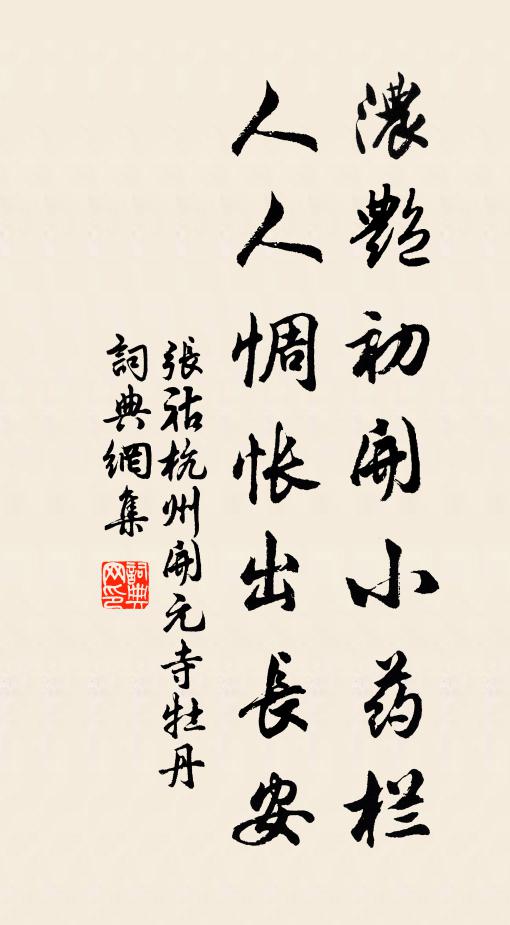 濃艷初開小药栏
人人惆怅出長安
張祜杭州開元寺牡丹
詞典網集
詞典网印